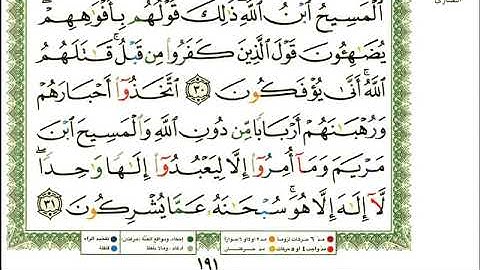 ٱلْمَسِيحُ ٱبْنُ ٱللَّهِۖ ذَٰلِكَ قَوْلُهُم بِأَفْوَٰهِهِمْۖ
يُضَٰهِـُٔونَ قَوْلَ ٱلَّذِينَ كَفَرُوا۟ مِن قَبْلُۚ قَٰتَلَهُمُ
ٱللَّهُۚ أَنَّىٰ يُؤْفَكُونَ ٣٠ ٱتَّخَذُوٓا۟ أَحْبَارَهُمْ
وَرُهْبَٰنَهُمْ أَرْبَابًا مِّن دُونِ ٱللَّهِ وَٱلْمَسِيحَ ٱبْنَ
مَرْيَمَ وَمَآ أُمِرُوٓا۟ إِلَّا لِيَعْبُدُوٓا۟ إِلَٰهًا وَٰحِدًاۖ
لَّآ إِلَٰهَ إِلَّا هُوَۚ سُبْحَٰنَهُۥ عَمَّا يُشْرِكُونَ ٣١
تفخيم الراء
قلقلة
١٩١